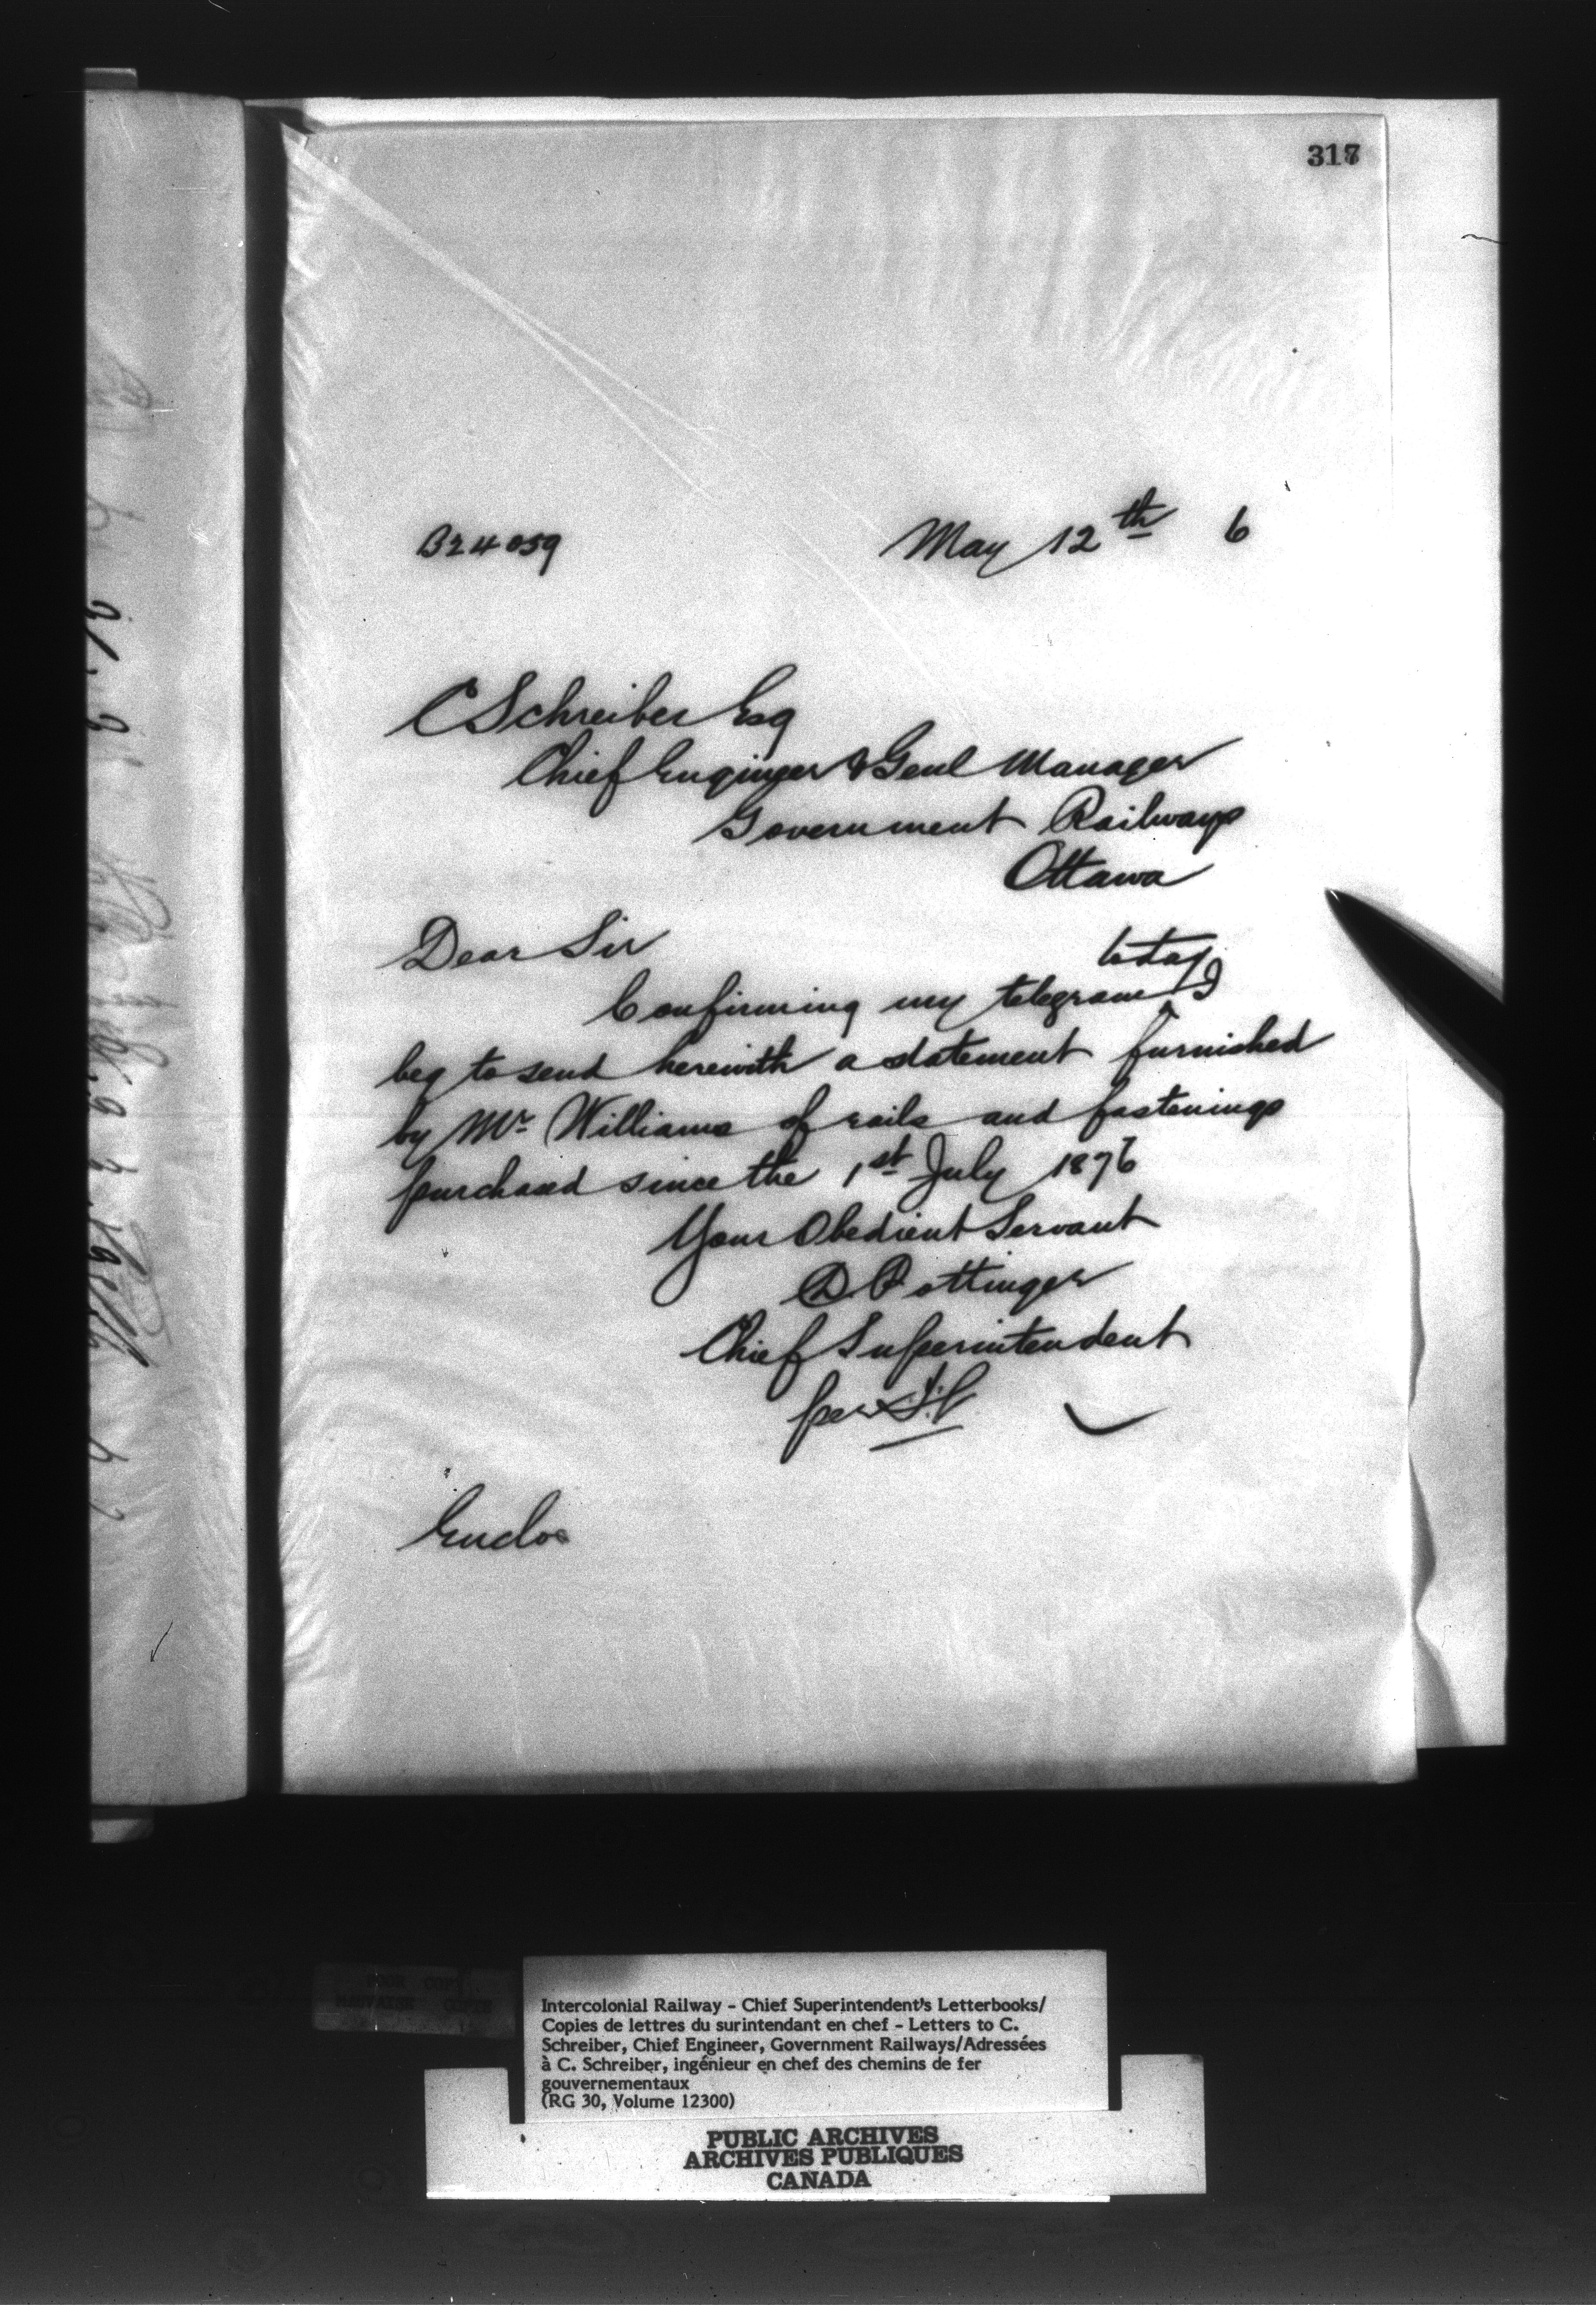 317
B24059 May 12th 6
C Schreiber Esq
Chief Engineer & Genl Manager
Government Railways
Ottawa
Dear Sir
Confirming my telegram today I
beg to send herewith a statement furnished
by Mr Williams of rails and fastenings
purchased since the 1st July 1876
Your Obedient Servant
D Pottinger
Chief Superintendent
per
Enclos
Intercolonial Railway - Chief Superintendent's Letterbooks/
Copies de lettres du surintendant en chef - Letters to C.
Schreiber, Chief Engineer, Government Railways/Adressées
à C. Schreiber, ingénieur en chef des chemins de fer
gouvernementaux
(RG 30, Volume 12300)
PUBLIC ARCHIVES
ARCHIVES PUBLIQUES
CANADA